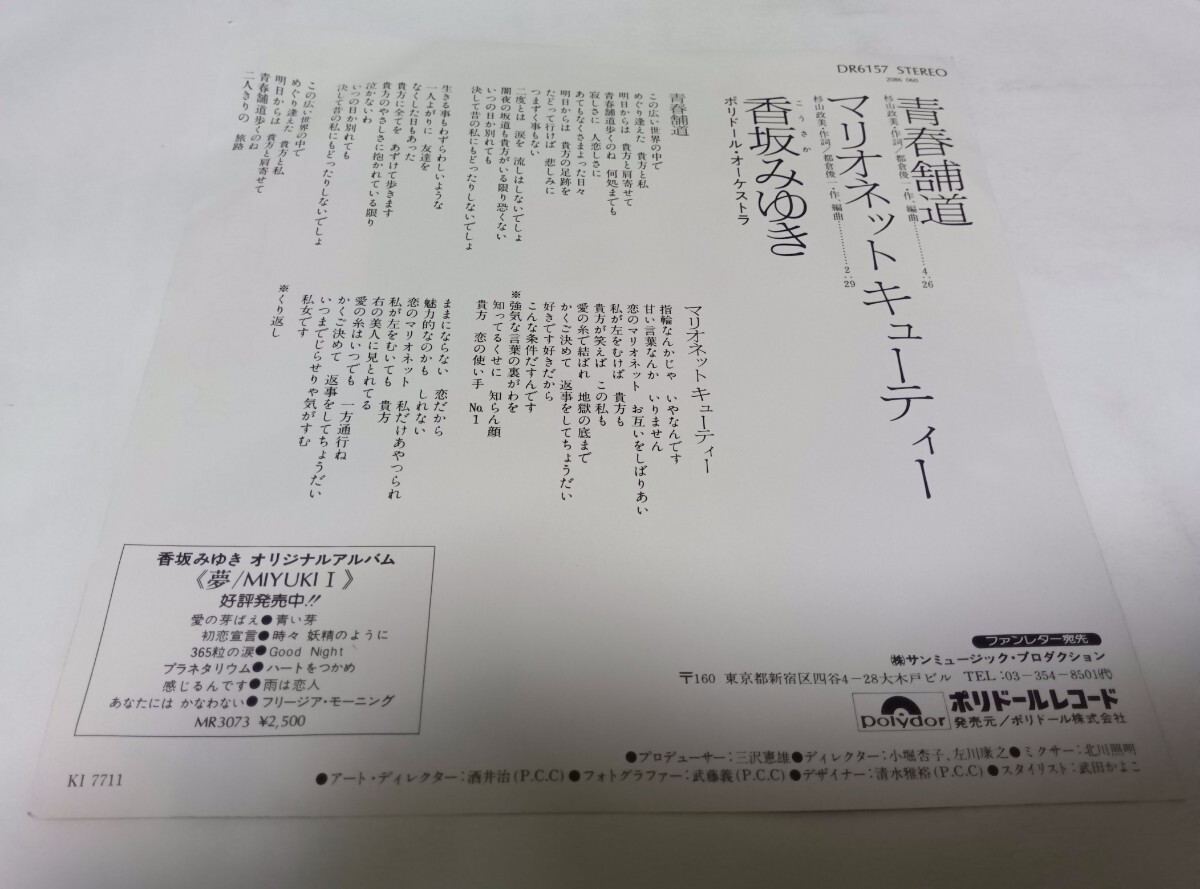 DR6157 STEREO
2086 060
青春舗道
杉山政美・作詞／都倉俊一・作、編曲…………4:26
マリオネットキューティー
杉山政美・作詞／都倉俊一・作、編曲…………2:29
こうさか
香坂みゆき
ポリドール・オーケストラ
青春舗道
この広い世界の中で
めぐり逢えた 貴方と私
明日からは 貴方と肩寄せて
青春舗道歩くのね 何処までも
寂しさに 人恋しさに
あてもなくさまよった日々
明日からは 貴方の足跡を
たどって行けば 悲しみに
つまずく事もない
二度とは 涙を 流しはしないでしょ
闇夜の坂道も貴方がいる限り恐くない
いつの日か別れても
決して昔の私にもどったりしないでしょ
生きる事もわずらわしいような
一人よがりに 友達を
なくした日もあった
貴方に全てを あずけて歩きます
貴方のやさしさに抱かれている限り
泣かないわ
いつの日か別れても
決して昔の私にもどったりしないでしょ
この広い世界の中で
めぐり逢えた 貴方と私
明日からは 貴方と肩寄せて
青春舗道歩くのね
二人きりの 旅路
マリオネットキューティー
指輪なんかじゃ いやなんです
甘い言葉なんか いりません
恋のマリオネット お互いをしばりあい
私が左をむけば 貴方も
貴方が笑えば この私も
愛の糸で結ばれ 地獄の底まで
かくご決めて 返事をしてちょうだい
好きです好きだから
こんな条件だすんです
※強気な言葉の裏がわを
知ってるくせに 知らん顔
貴方 恋の使い手 No.1
ままにならない 恋だから
魅力的なのかも しれない
恋のマリオネット 私だけあやつられ
私が左をむいても 貴方
右の美人に見とれてる
愛の糸はいつでも 一方通行ね
かくご決めて 返事をしてちょうだい
いつまでじらせりゃ気がすむ
私女です
※くり返し
香坂みゆき オリジナルアルバム
《夢/MIYUKI I》
好評発売中!!
愛の芽ばえ●青い芽
初恋宣言●時々 妖精のように
365粒の涙●Good Night
プラネタリウム●ハートをつかめ
感じるんです●雨は恋人
あなたには かなわない●フリージア・モーニング
MR3073 ¥2,500
ファンレター宛先
㈱サンミュージック・プロダクション
〒160 東京都新宿区四谷4-28大木戸ビル TEL:03-354-8501㈹
polydor
ポリドールレコード
発売元／ポリドール株式会社
●プロデューサー:三沢憲雄●ディレクター:小堀杏子、左川康之●ミクサー:北川照明
●アート・ディレクター:酒井治(P.C.C)●フォトグラファー:武藤義(P.C.C)●デザイナー:清水雅裕(P.C.C)●スタイリスト:武田かよこ
KI 7711